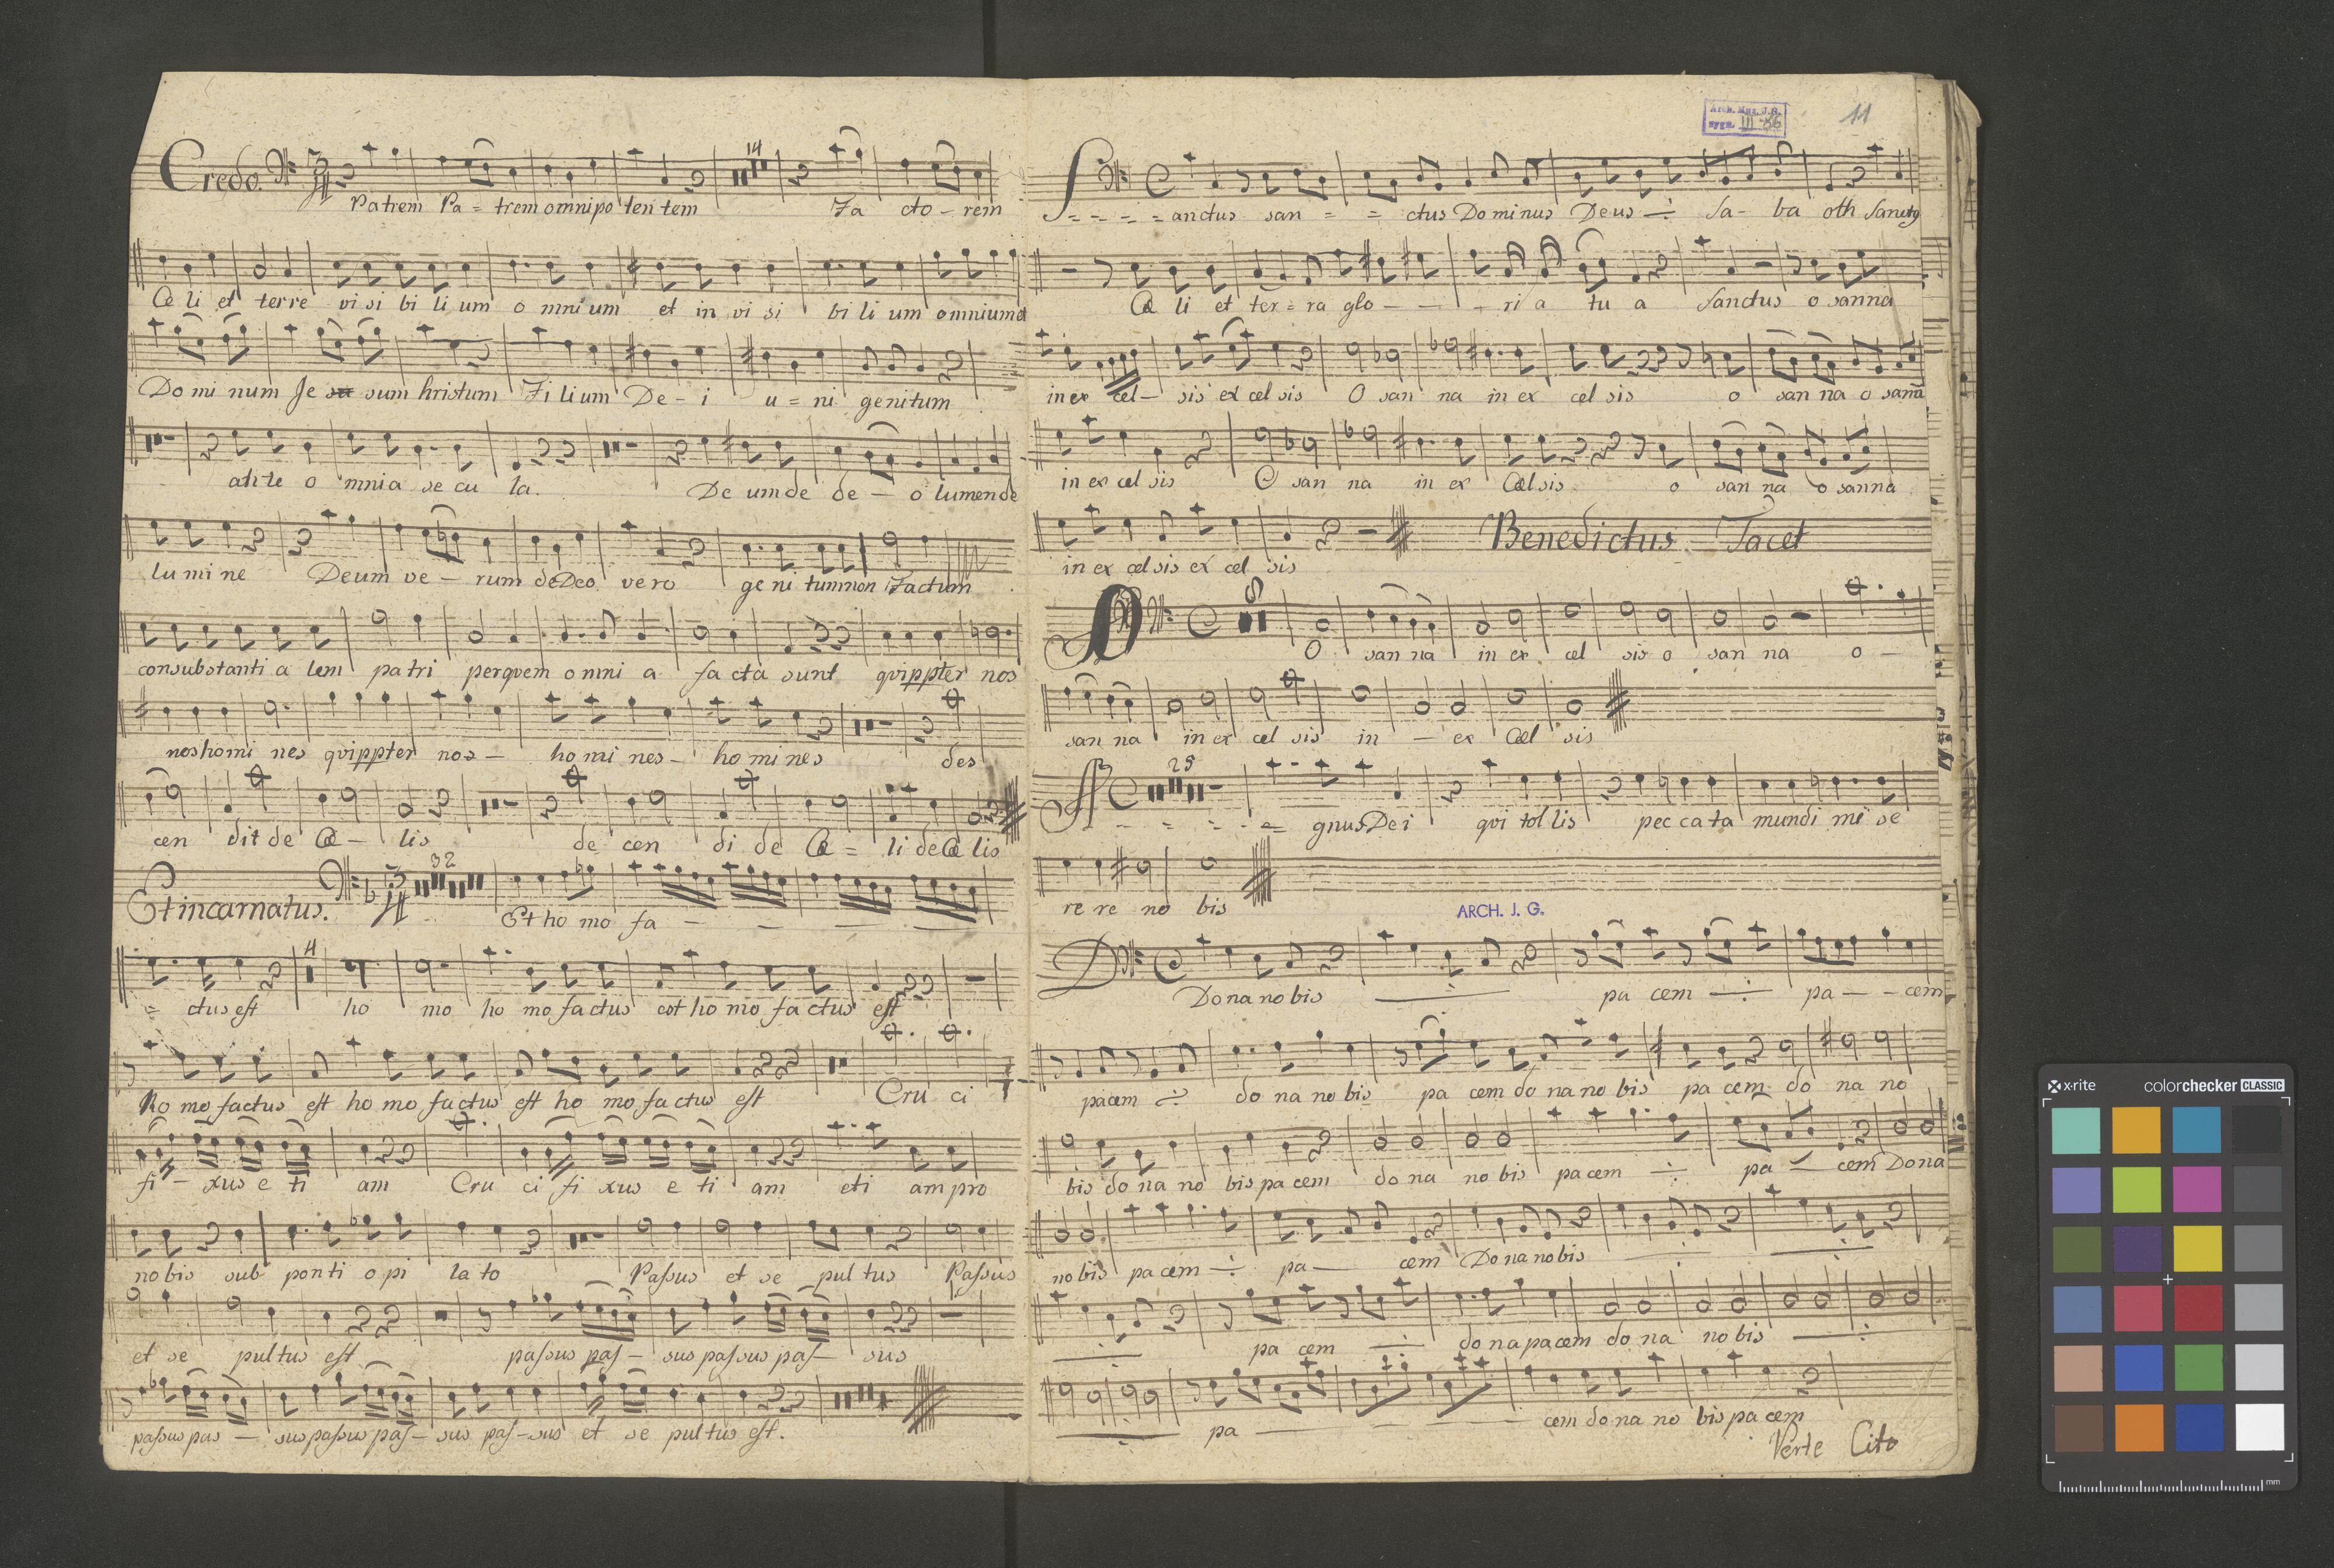 Credo.
14
Patrem Pa = trem omnipo ten tem Fa cto - rem
Cœ li et terre vi si bi li um o mni um et in vi si bi li um omnium et
Do mi num Je sum hristum Fi li um De - i u = ni genitum
an te o mnia se cu la. De um de de - o lumen de
lu mi ne Deum ve - rum de Deo vero ge ni tum non Factum
consubstanti a lem pa tri per quem o mni a fa cta sunt qvippter nos
nos homi nes qvippter nos - ho mi nes - ho mi nes des
cen dit de Cœ - lis de cen di de Cœ = li de Cœ lis
32
Et incarnatus. Et ho mo fa - - - -
4
= ctus est ho mo ho mo fa ctus est ho mo fa ctus est
Ho mo factus est ho mo factus est ho mo fa ctus est Cru ci
fi - xus e ti am Cru ci fi xus e ti am eti am pro
nobis sub ponti o pi la to Passus et se pul tus Passus
et se pultus est passus pas - sus passus pas - sus
passus pas - sus passus pas - sus pas - sus et se pul tus est.
Arch. Muz. J.G.
sygn. III-86
11
S = - - = anctus san = = ctus Do mi nus Deus ÷ Sa - ba oth Sanctus
Cœ li et ter = ra glo - - - ri a tu a Sanctus o sanna
in ex cel - sis ex cel sis O san na in ex cel sis o san na o sana
in ex cel sis O san na in ex Cœl sis o san na o sanna
Benedictus Tacet
in ex cel sis ex cel sis
8
O san na in ex cel sis o san na o -
san na in ex cel sis in - ex Cœl sis
25
A - - = - = gnus Dei qvi tol lis pec ca ta mundi mi se
re re no bis
ARCH. J. G.
D
Do na no bis ÷ pa cem ÷ pa - - cem
pacem ÷ do na no bis pa cem do na no bis pa cem do na no
bis do na no bis pa cem do na no bis pa cem ÷ pa - cem Dona
no bis pa cem ÷ pa - cem Do na no bis ÷ ÷
÷ pa cem ÷ do na pacem do na no bis ÷
÷ pa - - - cem do na no bis pa cem
Verte Cito
x-rite colorchecker CLASSIC
mm